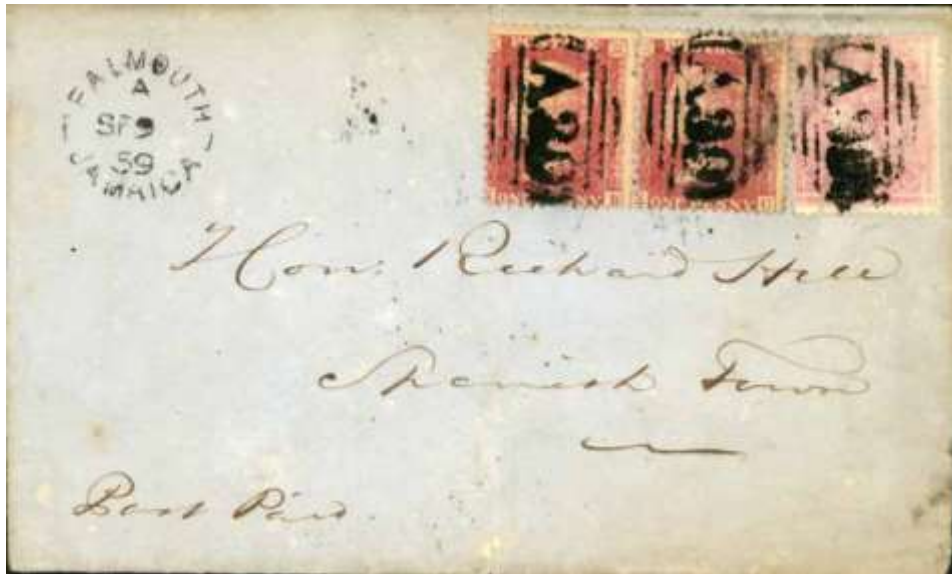 FALMOUTH
A
SP9
59
JAMAICA
A30
A30
A30
ONE PENNY
Hon. Richard Hill
Spanish Town
Post Paid